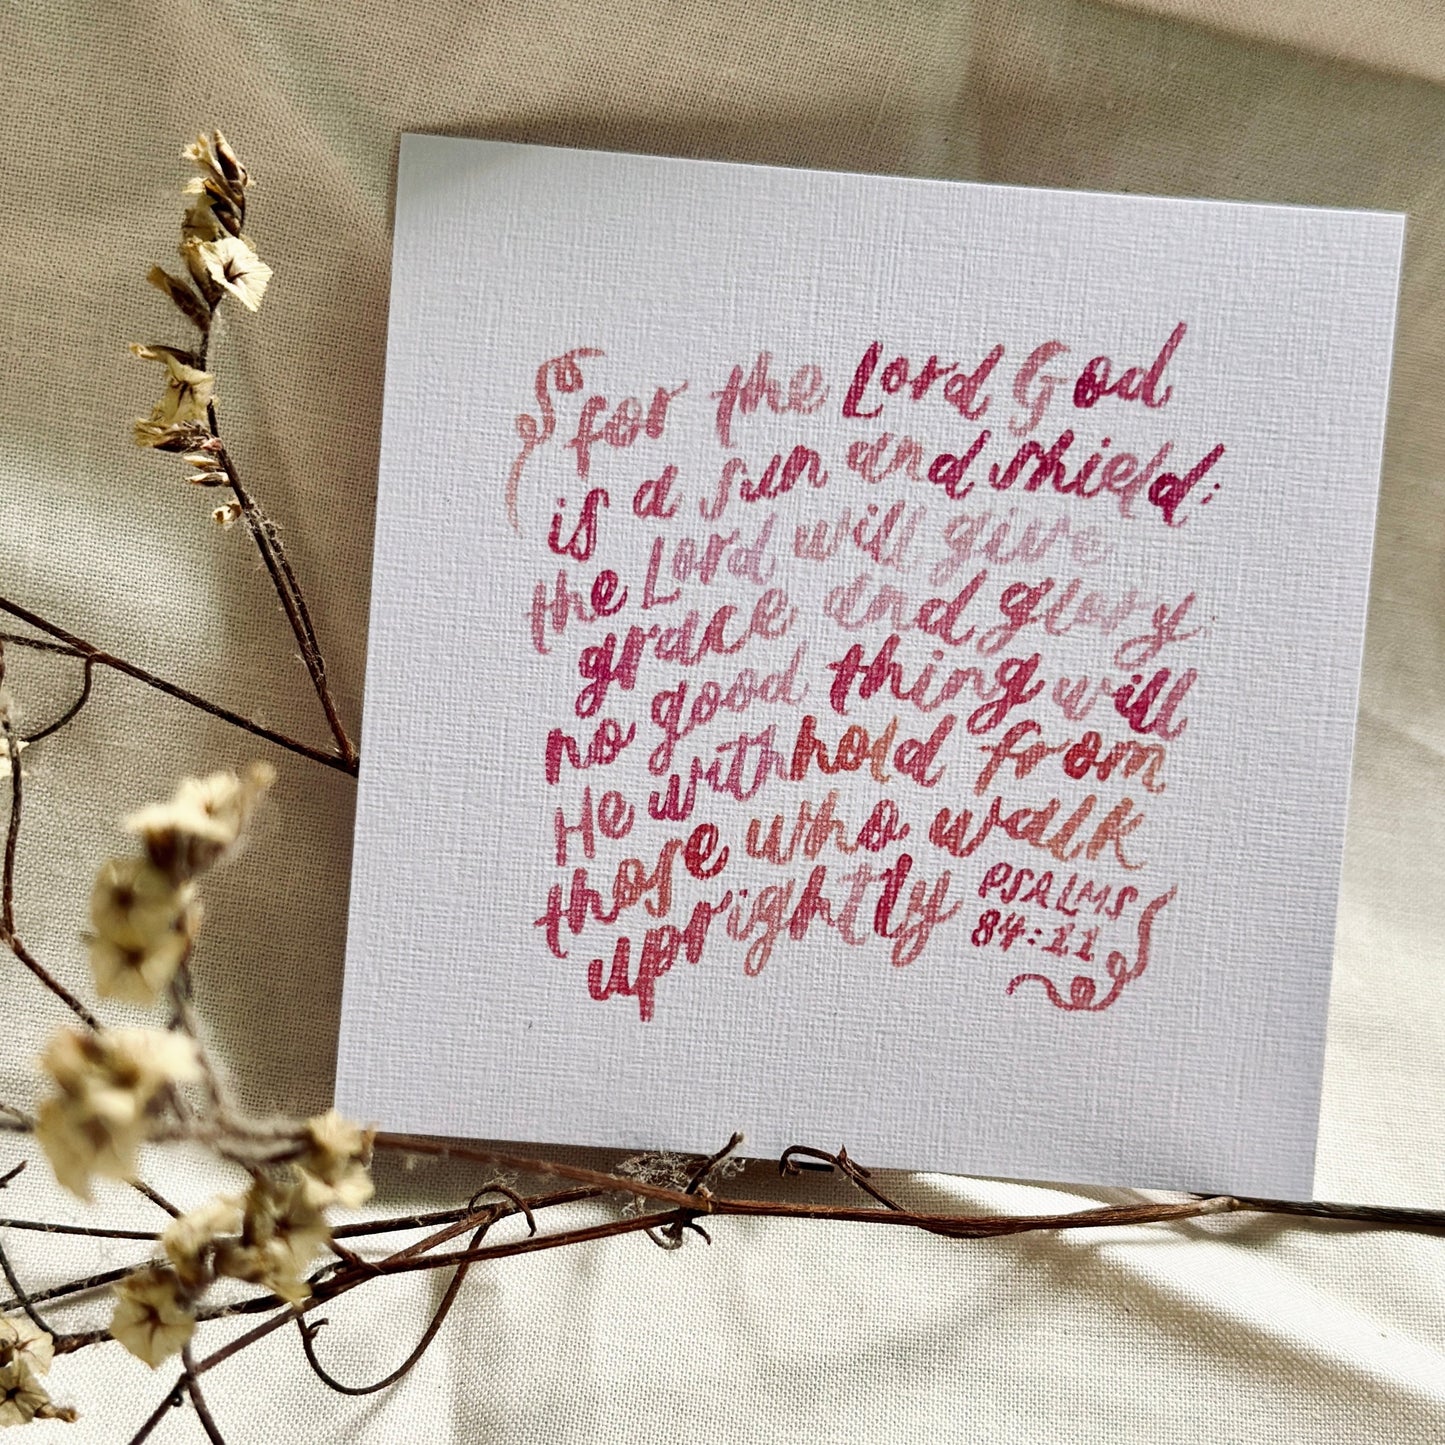 for the Lord God
is a sun and shield:
the Lord will give
grace and glory
no good thing will
He withhold from
those who walk
uprightly PSALMS
84:11